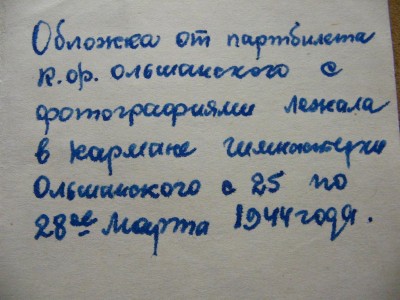 Обложка от партбилета
К.Ф. Ольшанского с
фотографиями лежала
в кармане гимнастерки
Ольшанского с 25 по
28ое Марта 1944 года.